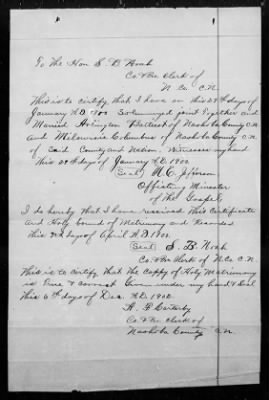 To The Hon S. B. Noah
Co & Ex Clerk of
N. Co. C.N.
This is to certify that I have on this 28th day of
January A.D. 1902 Solemnized joint Together and
Married Arlington of Nashoba County C.N.
and Columbus of Nashoba County C.N.
of Said County and Nation. Witness my hand
this 28th day of January A.D. 1902.
(Seal)
Officiating Minister
of the Gospel,
I do hereby that I have received this Certificate
and Holy bound of Matrimony and Recorded
this day of April A.D. 1902.
(Seal) S. B. Noah
Co & Ex Clerk of N. Co. C.N.
This is to certify that the Coppy of Holy Matrimony
is true & correct Given under my hand & Seal
this 6th day of Dec. A.D. 1902.
Co & Ex Clerk of
Nashoba County C.N.